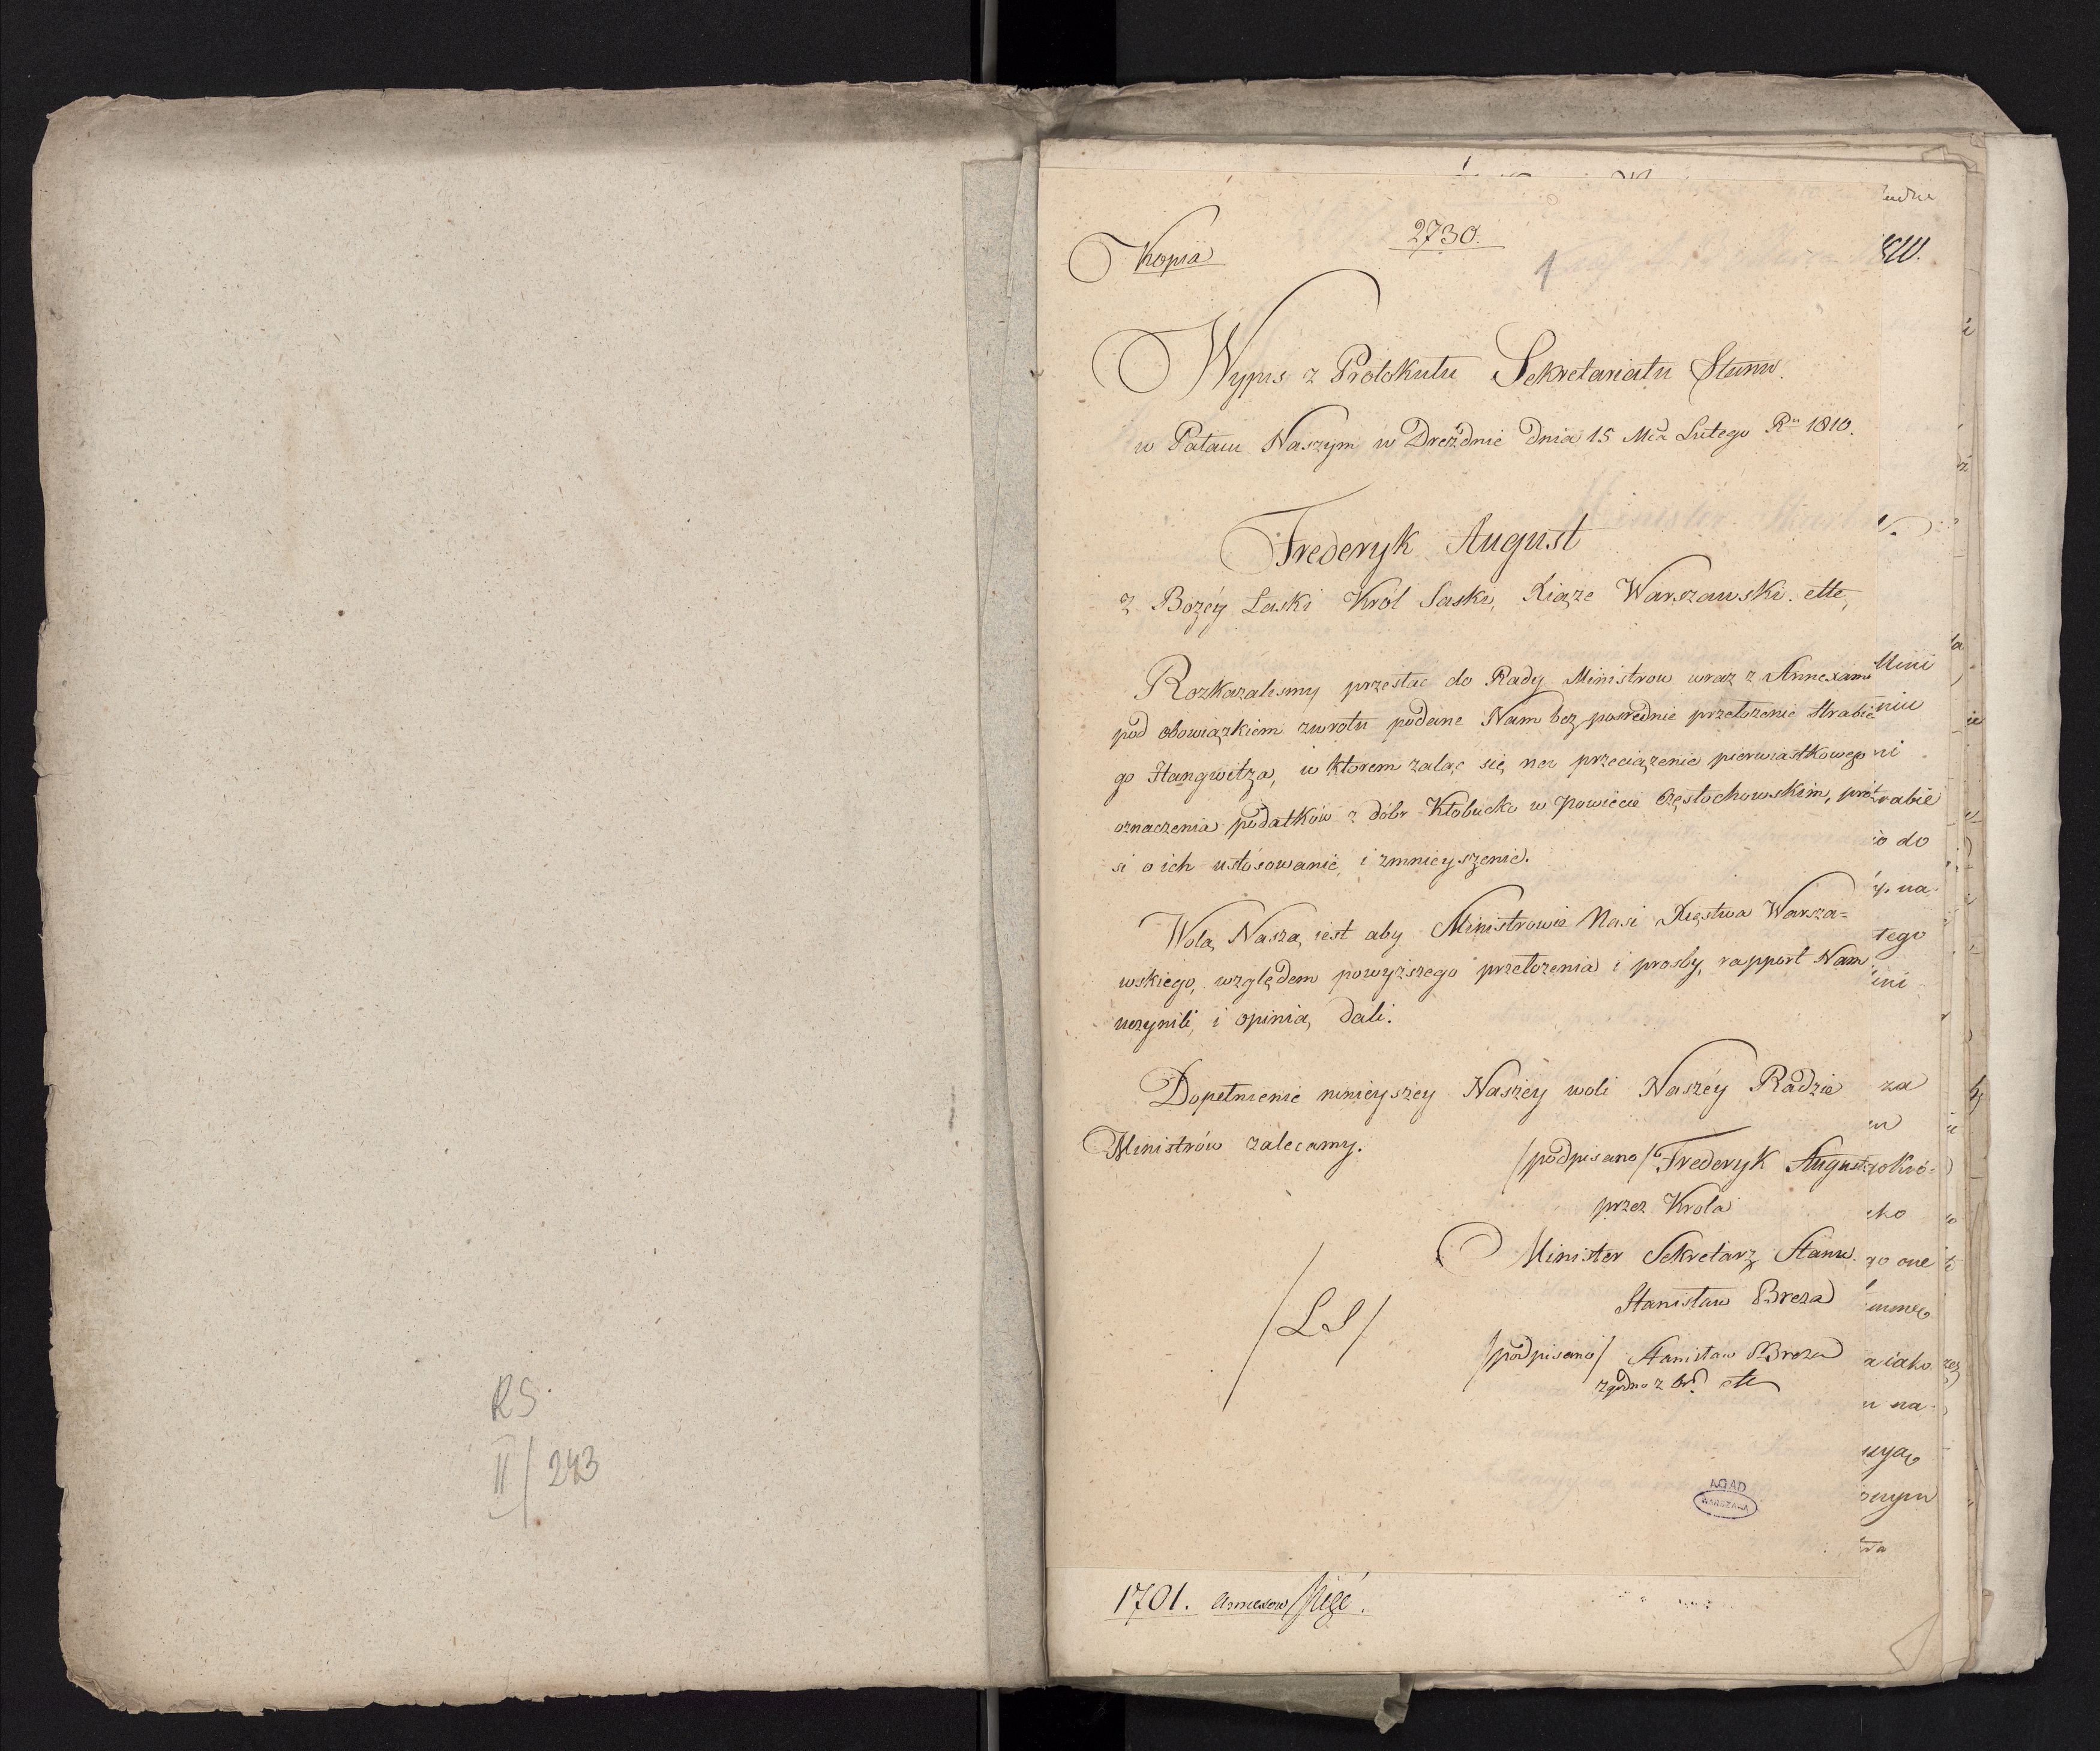 RS
II/243
Kopia
2730.
1
Wypis z Protokułu Sekretariatu Stanu.
w Pałacu Naszym w Dreźdnie dnia 15 Mca Lutego Ru 1810.
Frederyk August
z Bozéy Łaski Król Saski, Xiąże Warszawski. ette,
Rozkazalismy przesłać do Rady Ministrow wraz z Annexami
pod obowiązkiem zwrotu podane Nam bez posrednie przełożenie Hrabie
go Haugwitza, w ktorem zaląc się na przeciążenie pierwiastkowego
oznaczenia podatków z dóbr Kłobucko w Powiecie Częstochowskim, pro
si o ich ustósowanie i zmnieyszenie.
Wolą Naszą iest aby Ministrowie Nasi Xięstwa Warsza=
wskiego, względem powyższego przełożenia i prosby, rapport Nam
uczynili, i opinią dali.
Dopełnienie ninieyszey Naszéy woli Naszéy Radzie
Ministrów zalecamy.
/podpisano/ Frederyk August
przez Krola
Minister Sekretarz Stanu.
Stanisław Breza
/LS/
/podpisano/ Stanisław Breza
zgodno z Or. ette
AGAD
WARSZAWA
1701. Annexow